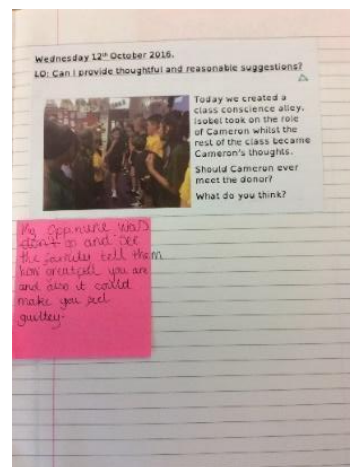 Wednesday 12th October 2016.
LO: Can I provide thoughtful and reasonable suggestions?
Today we created a
class conscience alley.
Isobel took on the role
of Cameron whilst the
rest of the class became
Cameron's thoughts.
Should Cameron ever
meet the donor?
What do you think?
My oppinune was
don't go and see
the families tell them
how greatfull you are
and also it could
make you feel
guiltey.